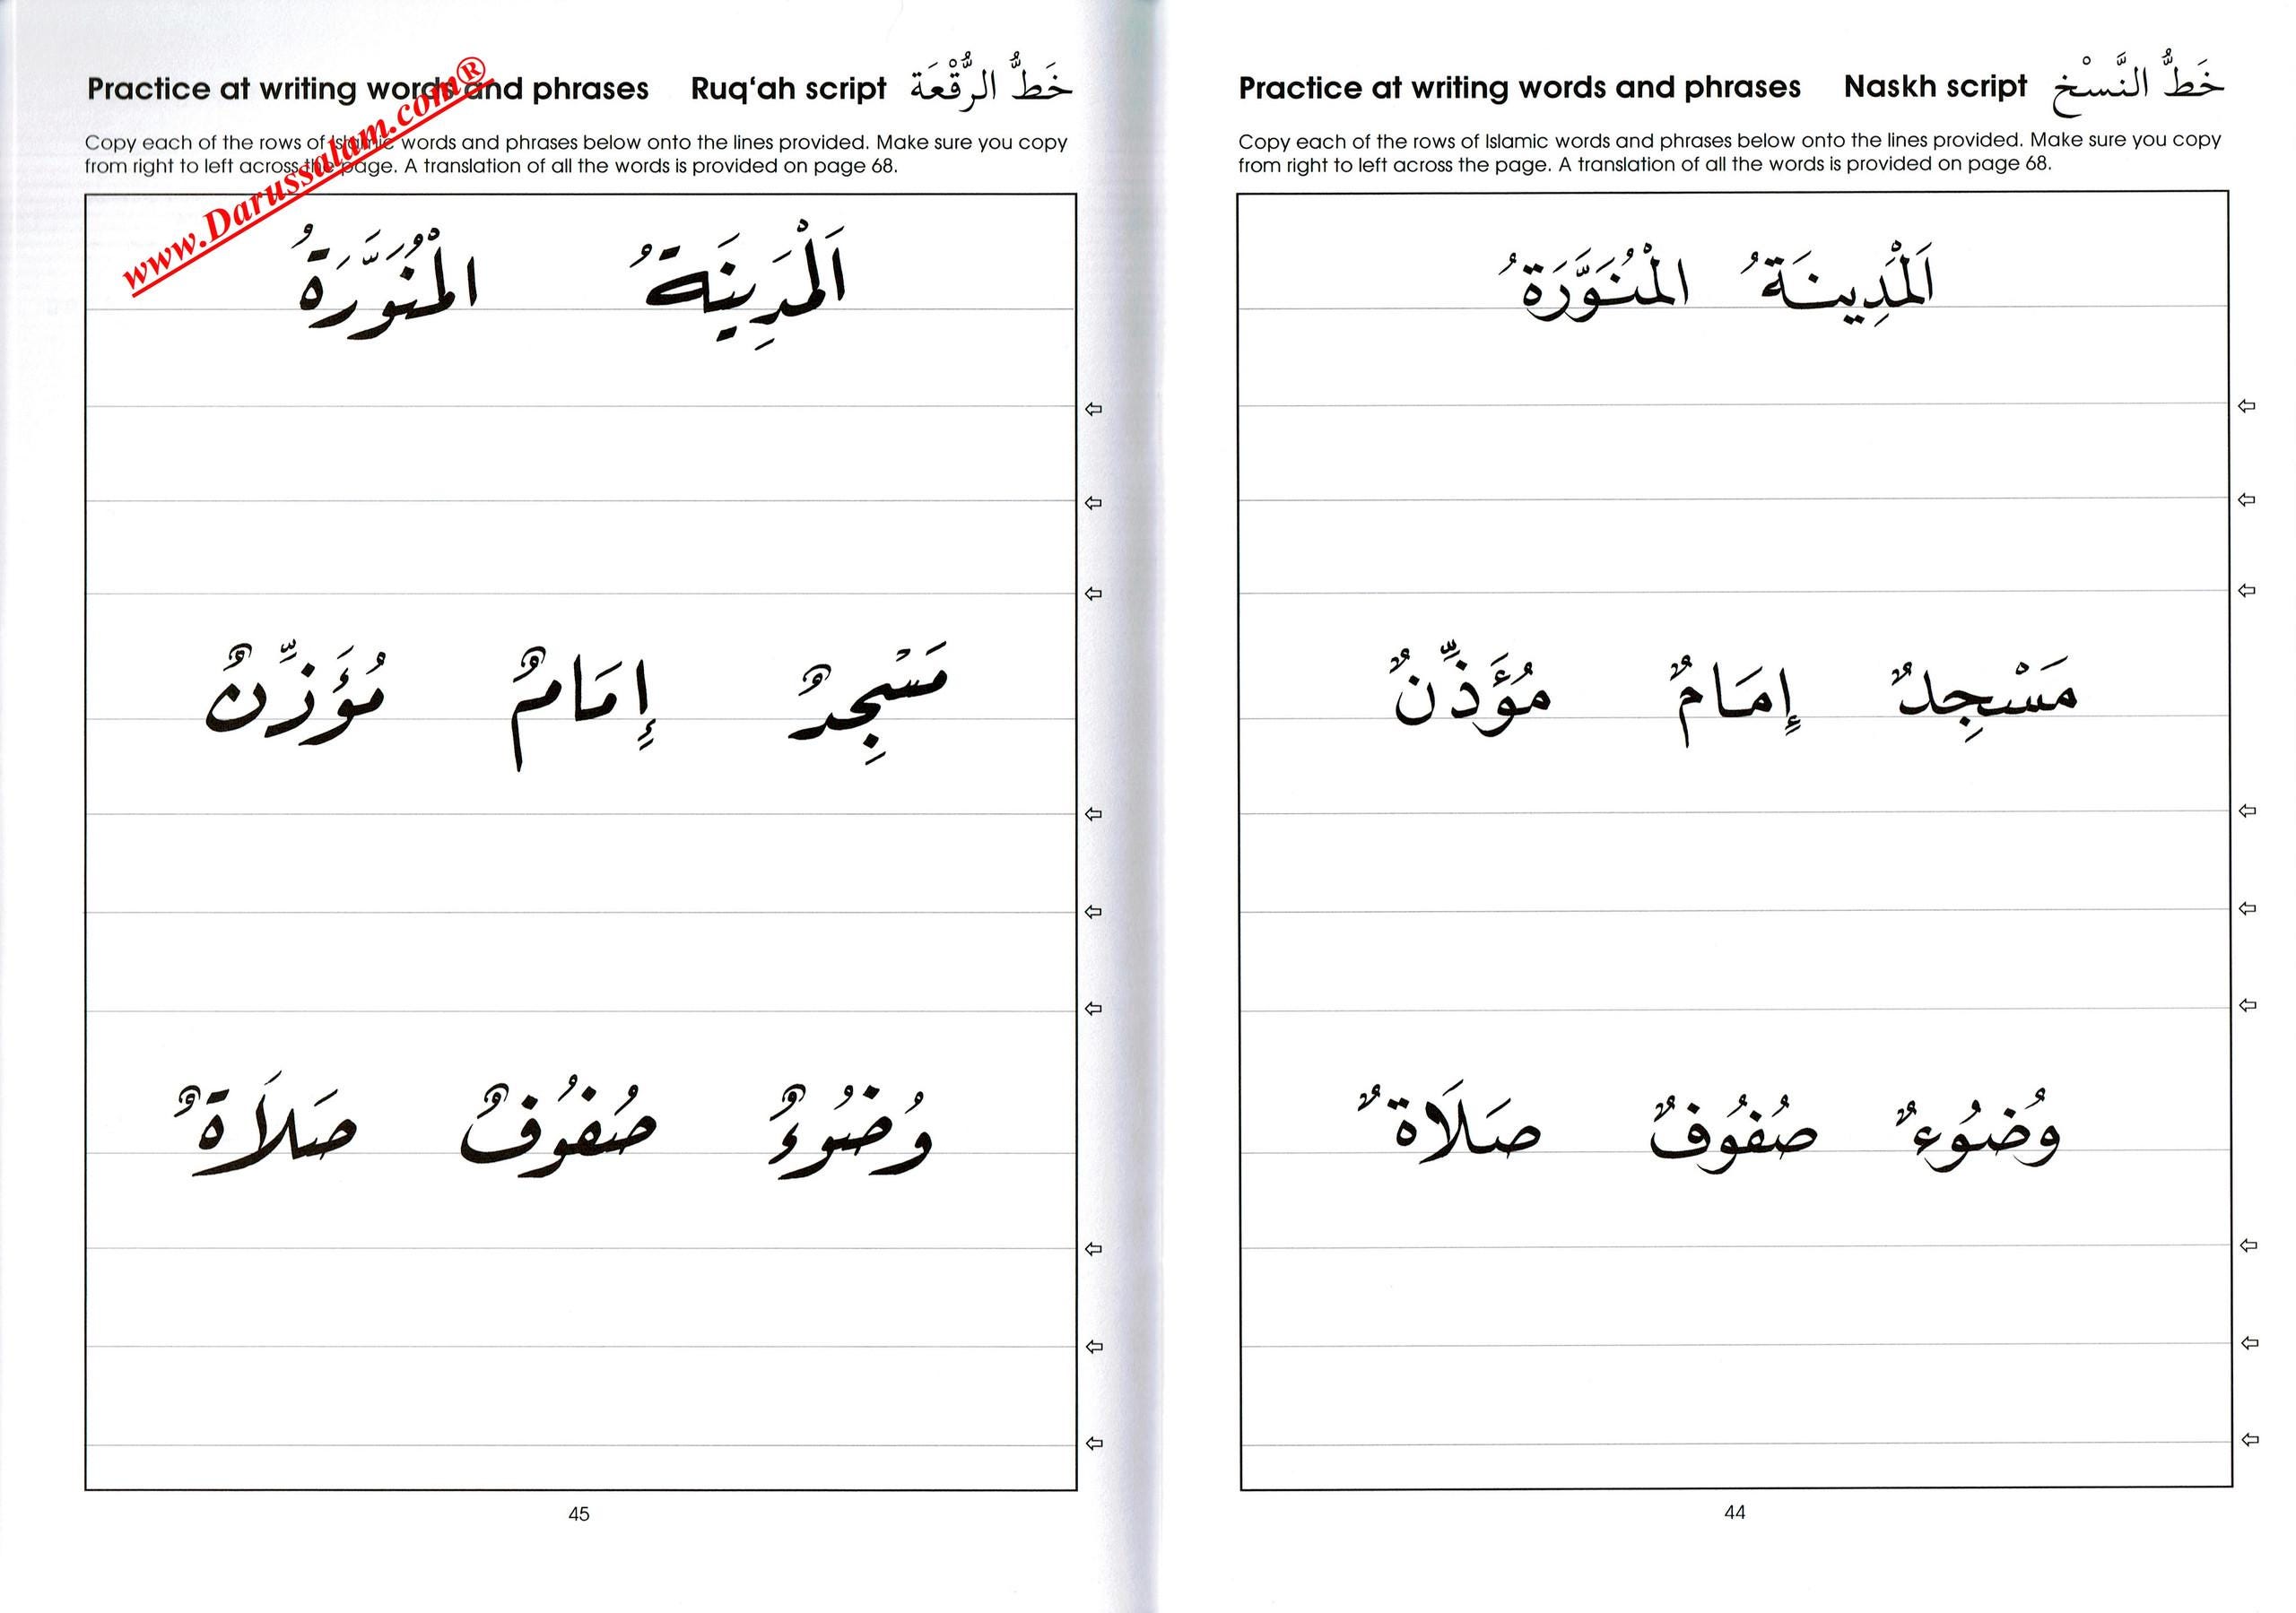 Practice at writing words and phrases Naskh script خَطُّ النَّسْخ
Copy each of the rows of Islamic words and phrases below onto the lines provided. Make sure you copy
from right to left across the page. A translation of all the words is provided on page 68.
اَلْمَدِينَةُ الْمُنَوَّرَةُ
مَسْجِدٌ إِمَامٌ مُؤَذِّنٌ
وُضُوءٌ صُفُوفٌ صَلَاةٌ
44
Practice at writing words and phrases Ruq‘ah script خَطُّ الرُّقْعَة
Copy each of the rows of Islamic words and phrases below onto the lines provided. Make sure you copy
from right to left across the page. A translation of all the words is provided on page 68.
www.Darussalam.com®
اَلْمَدِينَةُ الْمُنَوَّرَةُ
مَسْجِدٌ إِمَامٌ مُؤَذِّنٌ
وُضُوءٌ صُفُوفٌ صَلَاةٌ
45